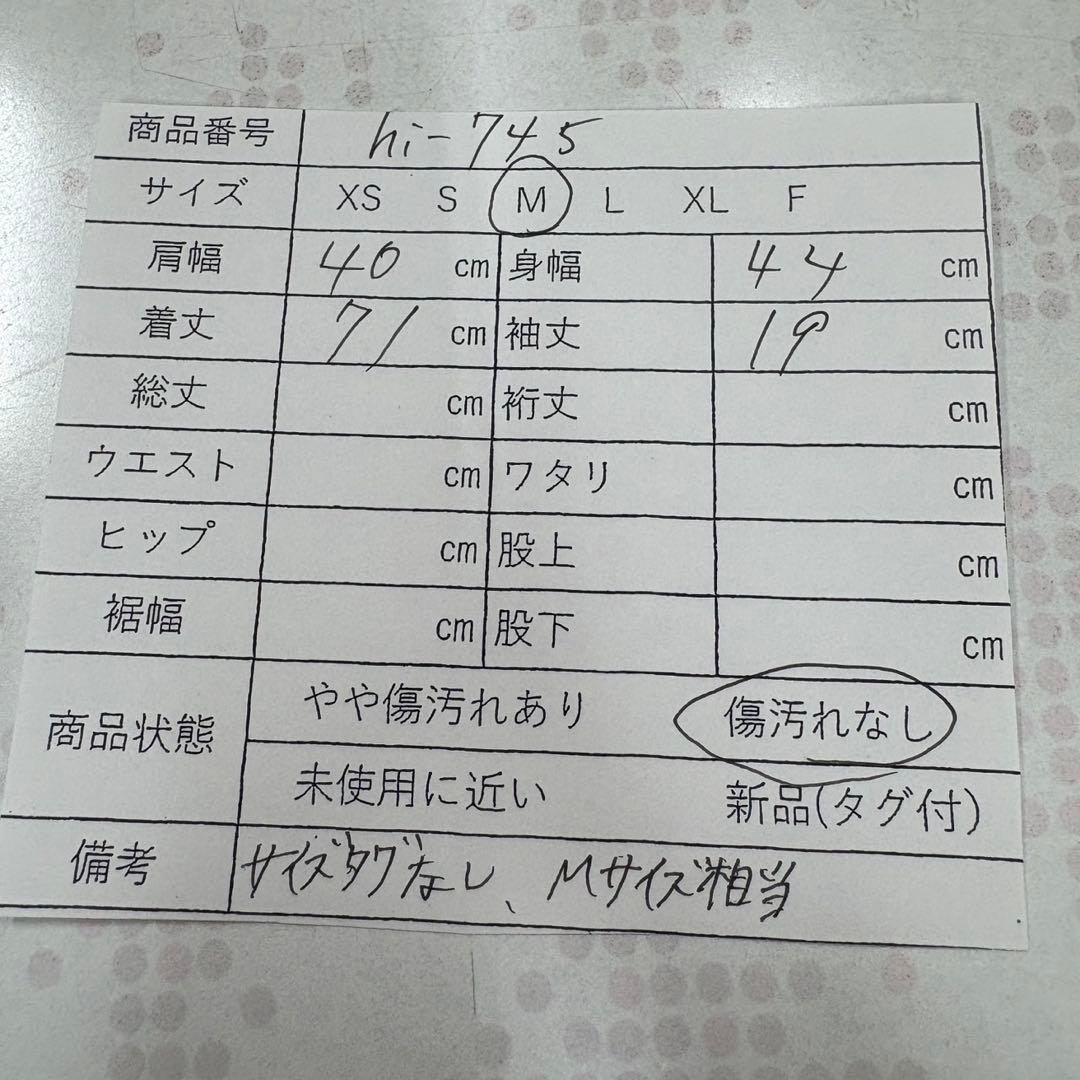 商品番号 hi-745
サイズ XS S M L XL F
肩幅 40 cm 身幅 44 cm
着丈 71 cm 袖丈 19 cm
総丈 cm 裄丈 cm
ウエスト cm ワタリ cm
ヒップ cm 股上 cm
裾幅 cm 股下 cm
商品状態 やや傷汚れあり 傷汚れなし
未使用に近い 新品(タグ付)
備考 サイズタグなし、Mサイズ相当